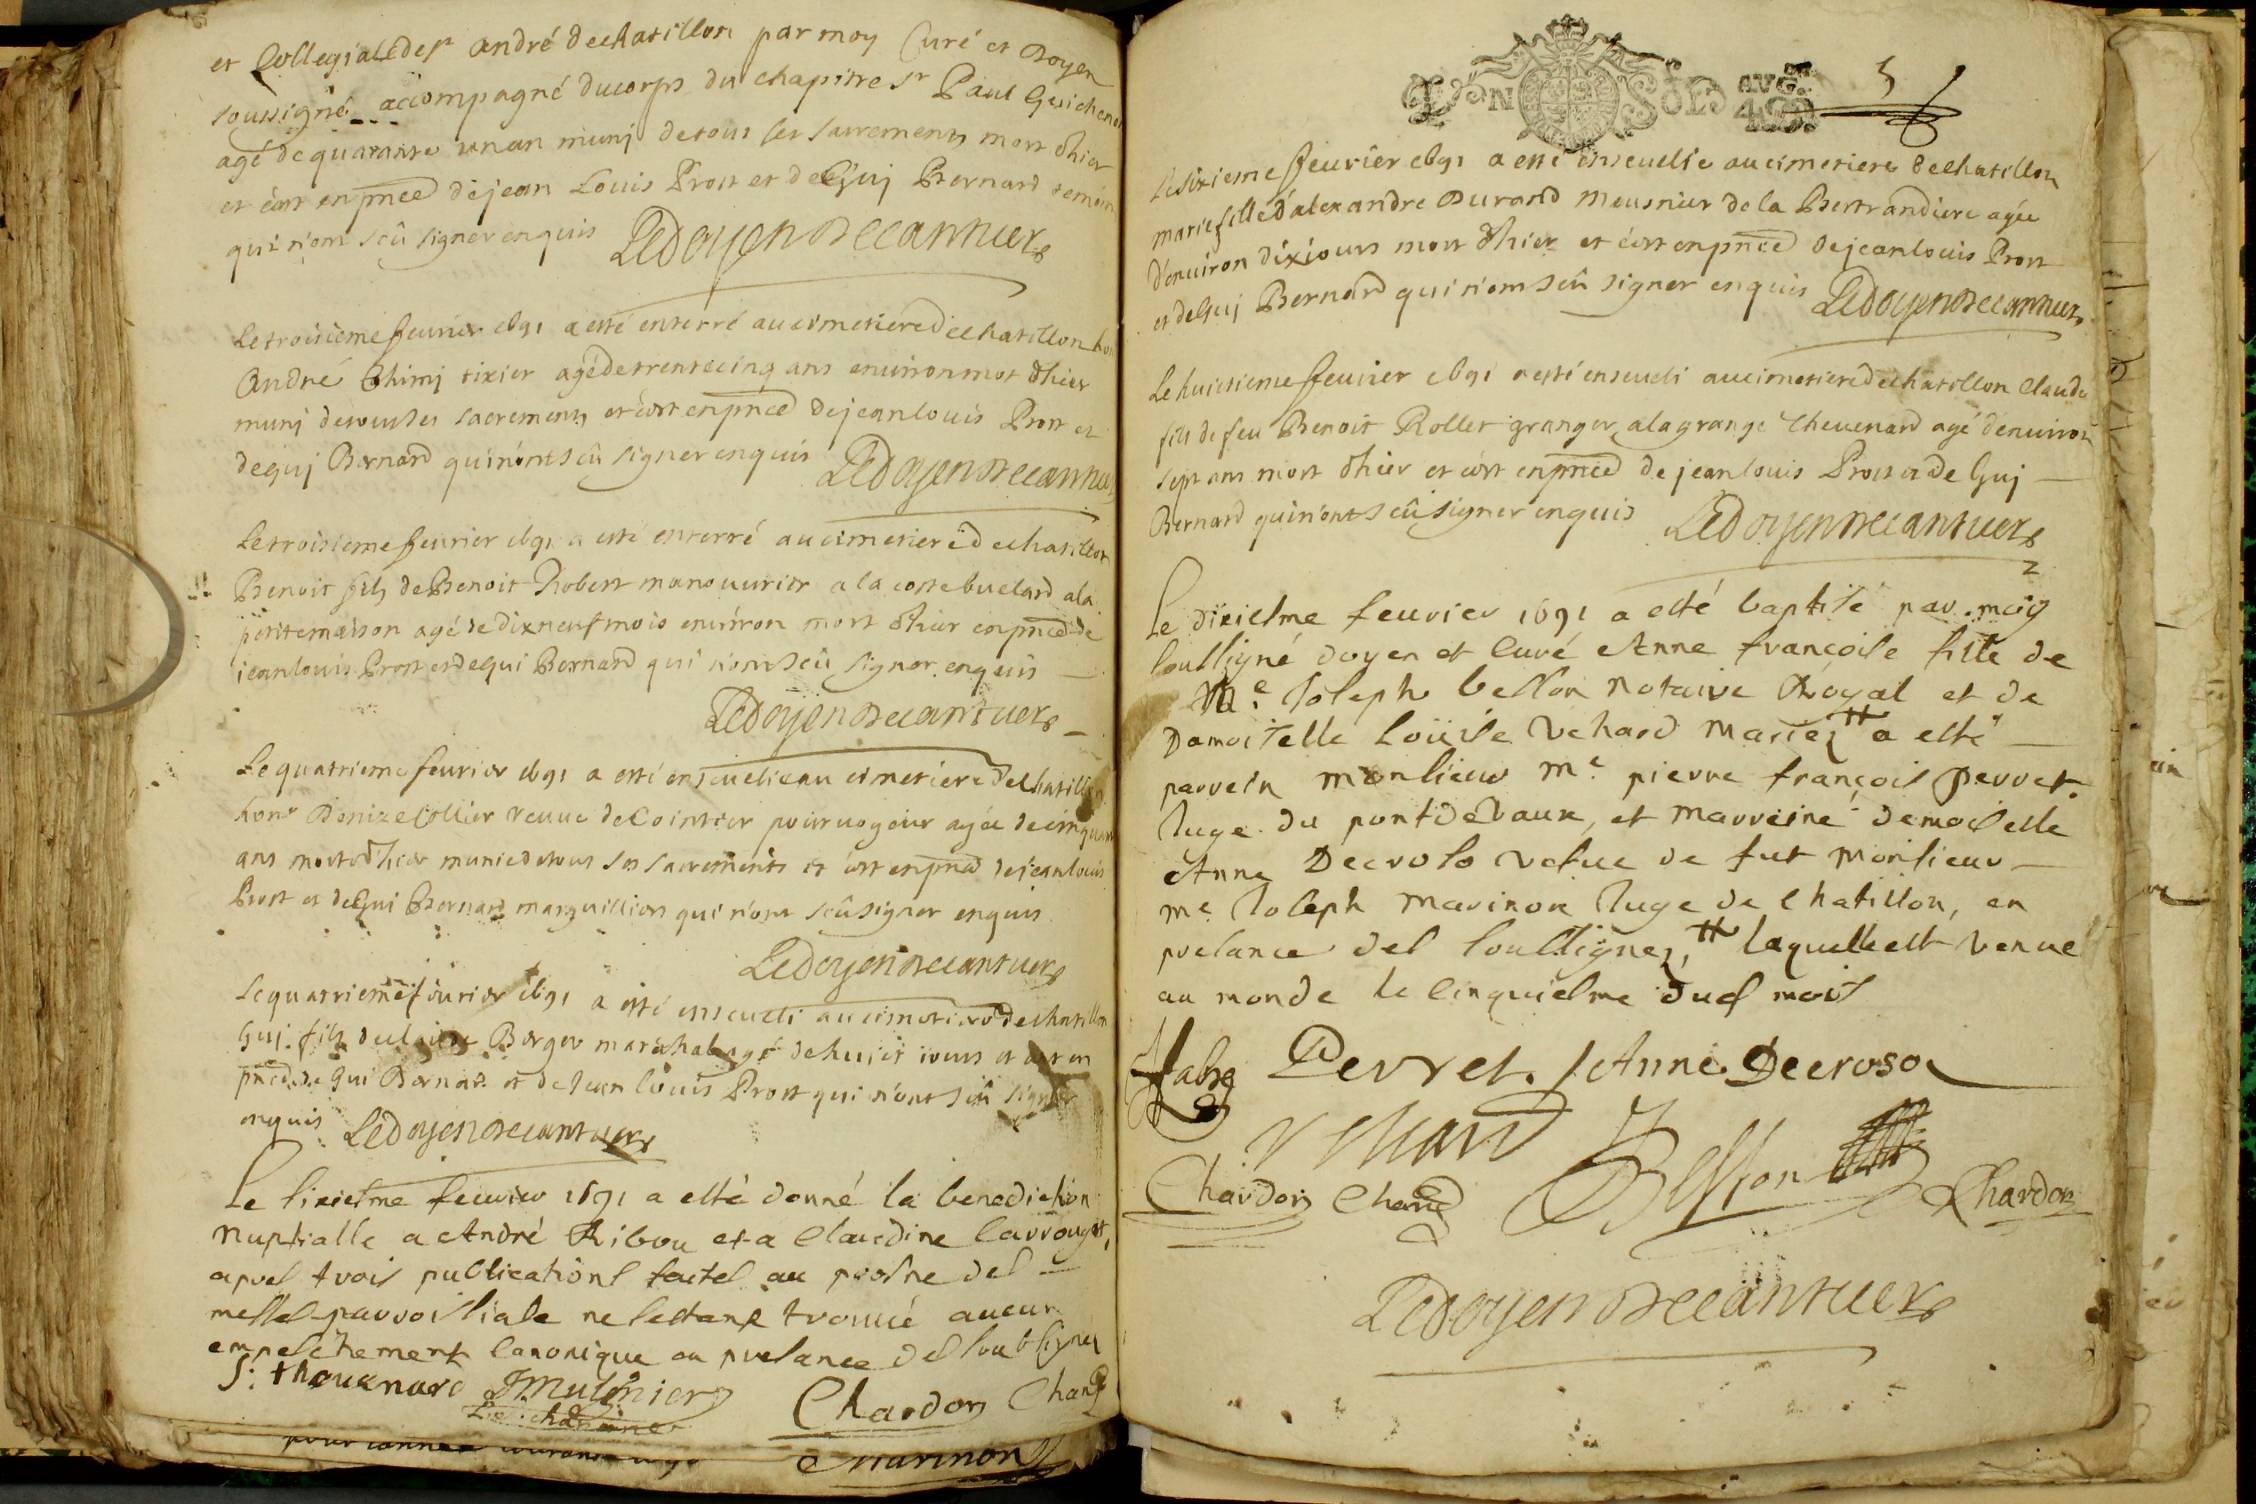 et Collegiale de st André de chatillon par moy Curé et Doyen
soussigné accompagné du corps du chapitre sr Paul Guichenon
agé de quarante un an munj de tous ses sacrements mort d'hier
et c'est en pnce de jean Louis Prost et de Guj Bernard temoins
qui n'ont sçû signer enquis Ledoyen Decantuers
Le troisieme feurier 1691 a esté enterré au cimetiere de chatillon hon
André tixier agé de trente cinq ans enuiron mort d'hier
munj de tous ses sacrements et c'est en pnce de jean louis Prost et
de guj Bernard qui n'ont sçû signer enquis Ledoyen Decantuers
Le troisieme feurier 1691 a esté enterré au cimetiere de chatillon
Benoit fils de Benoit Robert manouurier a la coste buelard a la
petite maison agé de dix neuf mois enuiron mort d'hier en pnce de
jean louis Prost et de gui Bernard qui n'ont sçû signer enquis
Ledoyen Decantuers
Le quatrieme feurier 1691 a esté enseuelie au cimetiere de chatillon
honr Denize Collier veuue de Cointier pouruoyeur agée de cinquante
ans morte d'hier munie de tous ses sacrements et c'est en pnce de jean louis
Prost et de Gui Bernard marguilliers qui n'ont sçû signer enquis
Ledoyen Decantuers
Le quatrieme feurier 1691 a esté enseueli au cimetiere de chatillon
Guj fils de Berger marechal agé de huict iours et c'est en
pnce de Gui Bernard et de Jean louis Prost qui n'ont sçû signer
enquis Ledoyen Decantuers
Le sixiesme feurier 1691 a esté donné la benediction
nuptialle a André Ribou et a Claudine Carrouget,
apres trois publications faites au prosne des
messes parroissiale ne s'estant trouué aucun
empeschement canonique en presance des soubsignes
S: thouenard Chardon Chan
pour lannee courante
Marinon
GEN SOLS AVG. 4 5
Le sixieme feurier 1691 a esté enseuelie au cimetiere de chatillon
marie fille d'alexandre Durand Meusnier de la Bertrandiere agée
d'enuiron dix iours mort d'hier et c'est en pnce de jean louis Prost
et de Guj Bernard qui n'ont sçû signer enquis Ledoyen Decantuers
Le huictieme feurier 1691 a esté enseueli au cimetiere de chatillon Claude
fils de feu Benoit Rollet granger a la grange Theuenard agé d'enuiron
sept ans mort d'hier et c'est en pnce de jean louis Prost et de Guj
Bernard qui n'ont sçû signer enquis Ledoyen Decantuers
Le dixiesme feurier 1691 a esté baptisé par moy
soussigné doyen et curé Anne françoise fille de
Me Joseph Besson notaire Royal et de
Damoiselle Loüise Vchard mariez a esté
parrein monsieur me pierre françois Perret
Juge du pontdeVaux, et marreine demoiselle
Anne Decroso vefue de fut monsieur
me Joseph marinon Juge de Chatillon, en
presance des soussignez, laquelle est venue
au monde le cinquiesme dud mois
Fabre Perret. Anne Decroso
Vchard Besson
Chardon Chan Chardon
Ledoyen Decantuers